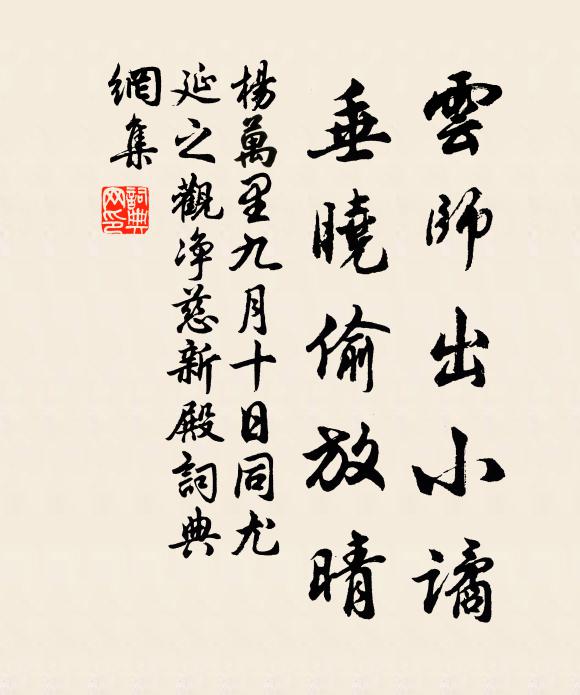 雲師出小譎
垂曉偷放晴
楊萬里九月十日同尤
延之觀净慈新殿詞典
網集
詞典
网印